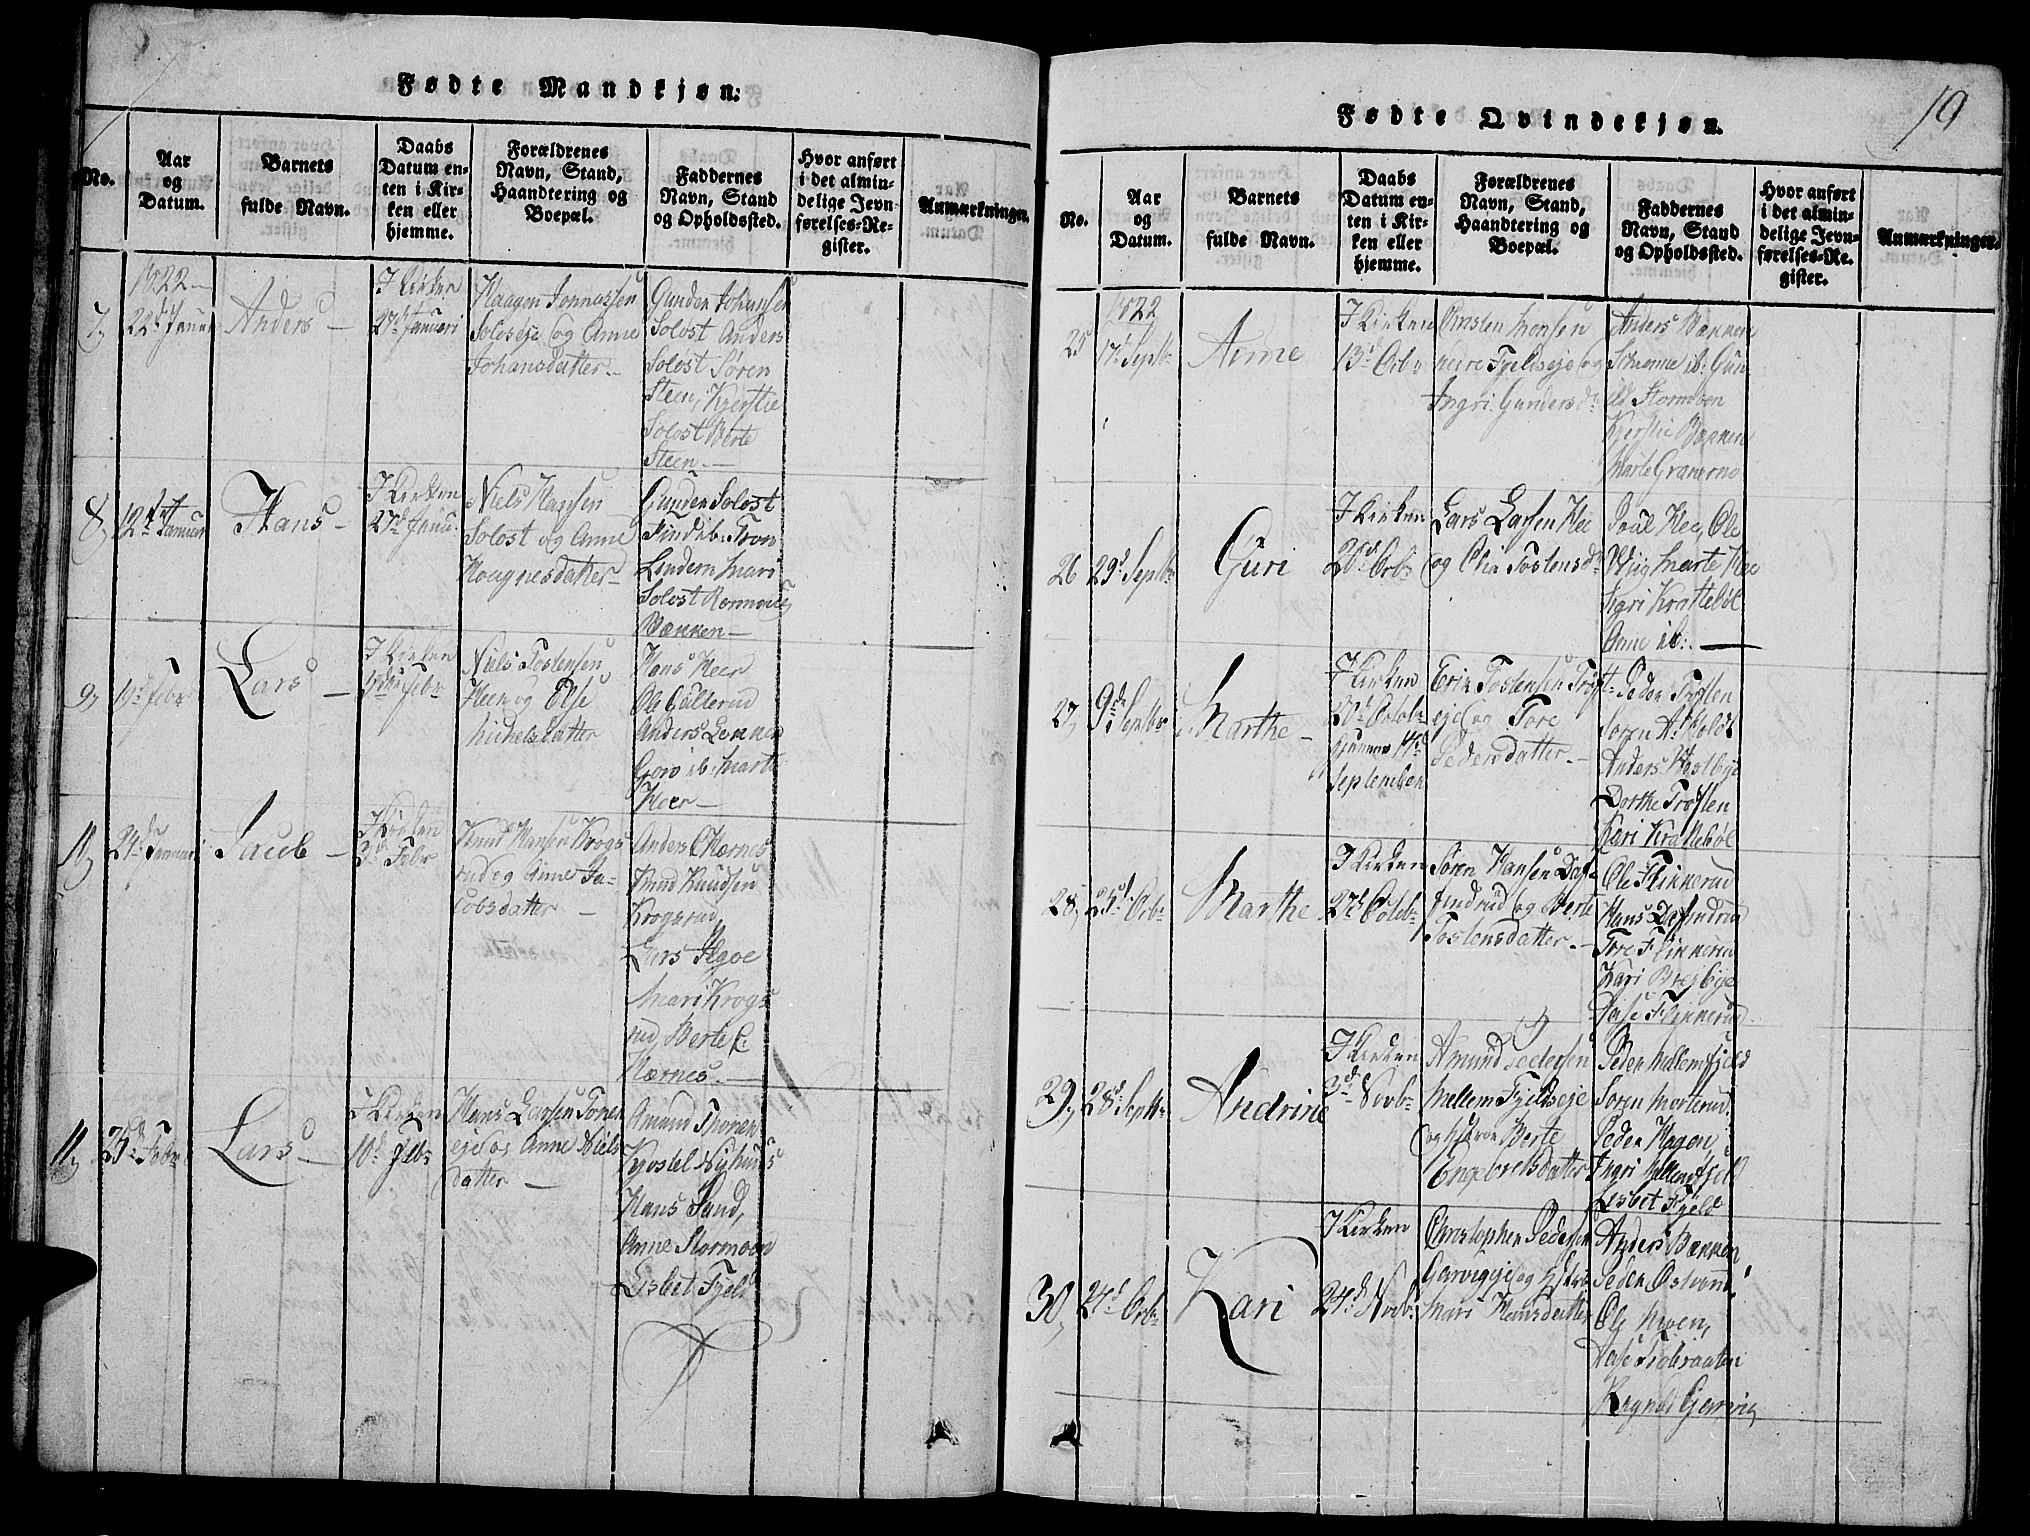 Fødte Mandkjøn:
No.
Aar
og
Datum.
Barnets
fulde Navn.
Daabs
Datum en-
ten i Kir-
ken eller
hjemme.
Forældrenes
Navn, Stand,
Haandtering og
Boepæl.
Faddernes
Navn, Stand
og Opholdssted.
Hvor anført
i det almin-
delige Jevn-
førelses-Re-
gister.
Anmærkninger.
1822
7,
22d Janu
Anders
I Kirken
27d Januari
Haagen Jonnassen
Soloseje og Anne
Johansdatter
Gunder Johansen
Solost Anders
Solost Søren
Steen, Kjerstie
Solost Berte
Steen
8,
12d Januar
Hans
I Kirken
27d Janu.
Niels Hansen
Solost og Anne
Haagnesdatter
Gunder Solost
Find ib: Tron
Lindern Mari
Solost
Bækken
9,
19d Febr
Lars
I Kirken
Febr
Niels Tostensen
Heer og Else
Michelsdatter
Hans Heer
Ole Gullerud
Anders
Goro ib: Marte
Heer
10,
24d Januari
Jacob
I Kirken
3d Febr
Knud Hansen Krogs
rud og Anne Ja-
cobsdatter
Anders Kærnes
Knud Knudsen
Krogsrud,
Lars
Mari Krogs
rud, Berte
Kærnes
11,
Febr
Lars
I Kirken
10d Febr
Hans Larsen Tonen
eje og Anne Niels
datter
Amund Thonen
Kjostel Nyhuus
Hans Sand,
Anne Stormoen
Lisbet Fjeld
19
Fødte Qvindekjøn.
No.
Aar
og
Datum.
Barnets
fulde Navn.
Daabs
Datum en-
ten i Kir-
ken eller
hjemme.
Forældrenes
Navn, Stand,
Haandtering og
Boepæl.
Faddernes
Navn, Stand
og Opholdssted.
Hvor anført
i det almin-
delige Jevn-
førelses-Re-
gister.
Anmærkninger.
1822
25
17d Septbr
Anne
I Kirken
13d Octbr
Tjeldseje og
Ingri Gundersdr
Anders Bækken
ib: Gun
ild Stormoen
Kjerstie Bækken
Marte
26
29d Septbr
Guri
I Kirken
20d Octbr
Lars Larsen Hee
og Olia Tostensdr
Poul Hee, Ole
Wiig Marte Hee
Kari Krattebøl
Anne ib:
27,
9de Septbr
Marthe
I Kirken
20d Octobr
hjemme 14d
September
Erik Tostensen Trøst
eje og Tore
Pedersdatter
Peder Trosten
Soren
Anders Westbye
Dorthe Trosten
Kari Krattebøl
28,
25d Octbr
Marthe
I Kirken
27d Octobr
Søren Hansen Daf-
findrud og Berte
Tostensdatter
Ole Flinnerud
Hans Dafindrud
Tore Flinnerud
Kari Bresbye
Aase Flinnerud
29,
28d Septbr
Andrine
I Kirken
3d Novbr
Amund Pedersen
Mellem Fjeldseje
og Hstroe Berte
Engebretsdatter
Peder Mellemfjeld
Soren Morterud
Peder Hagen,
Ingri Mellemfjeld
Lisbet Fjeld
30,
24d Octbr
Kari
I Kirken
24d Novbr
Christopher Pedersen
Garvigeje og Hstroe
Mari Hansdatter
Anders Bækken
Peder
Ole Moen,
Aase
Ragnil Gjervig